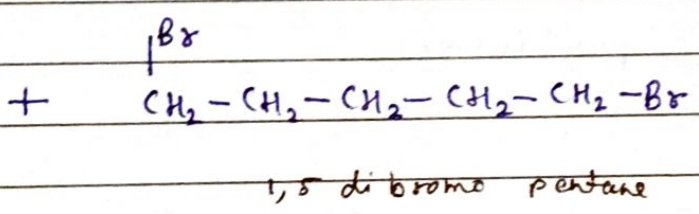 Br
+ CH₂ – CH₂ – CH₂ – CH₂ – CH₂ – Br
1, 5 di bromo pentane